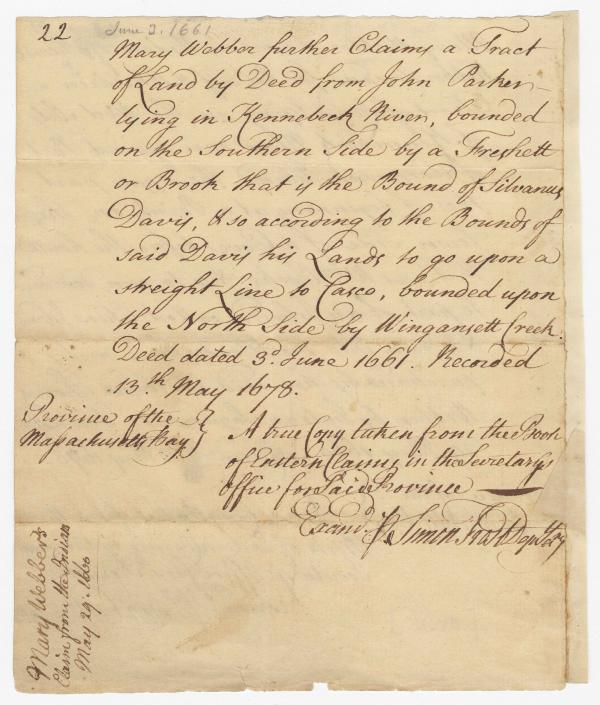 22
June 3. 1661
Mary Webber further Claims a Tract
of Land by Deed from John Parker
lying in Kennebeck River, bounded
on the Southern Side by a Freshett
or Brook that is the Bound of Silvanus
Davis, & so according to the Bounds of
said Davis his Lands to go upon a
streight Line to Casco, bounded upon
the North Side by Wingansett Creek.
Deed dated 3d. June 1661. Recorded
13.th May 1678.
Province of the
Massachusetts Bay
A true Copy taken from the Book
of Eastern Claims in the Secretarys
office for said Province
Examd. 
Simon Frost Dep
Mary Webber's
Claim from the Indians
May 29. 1660